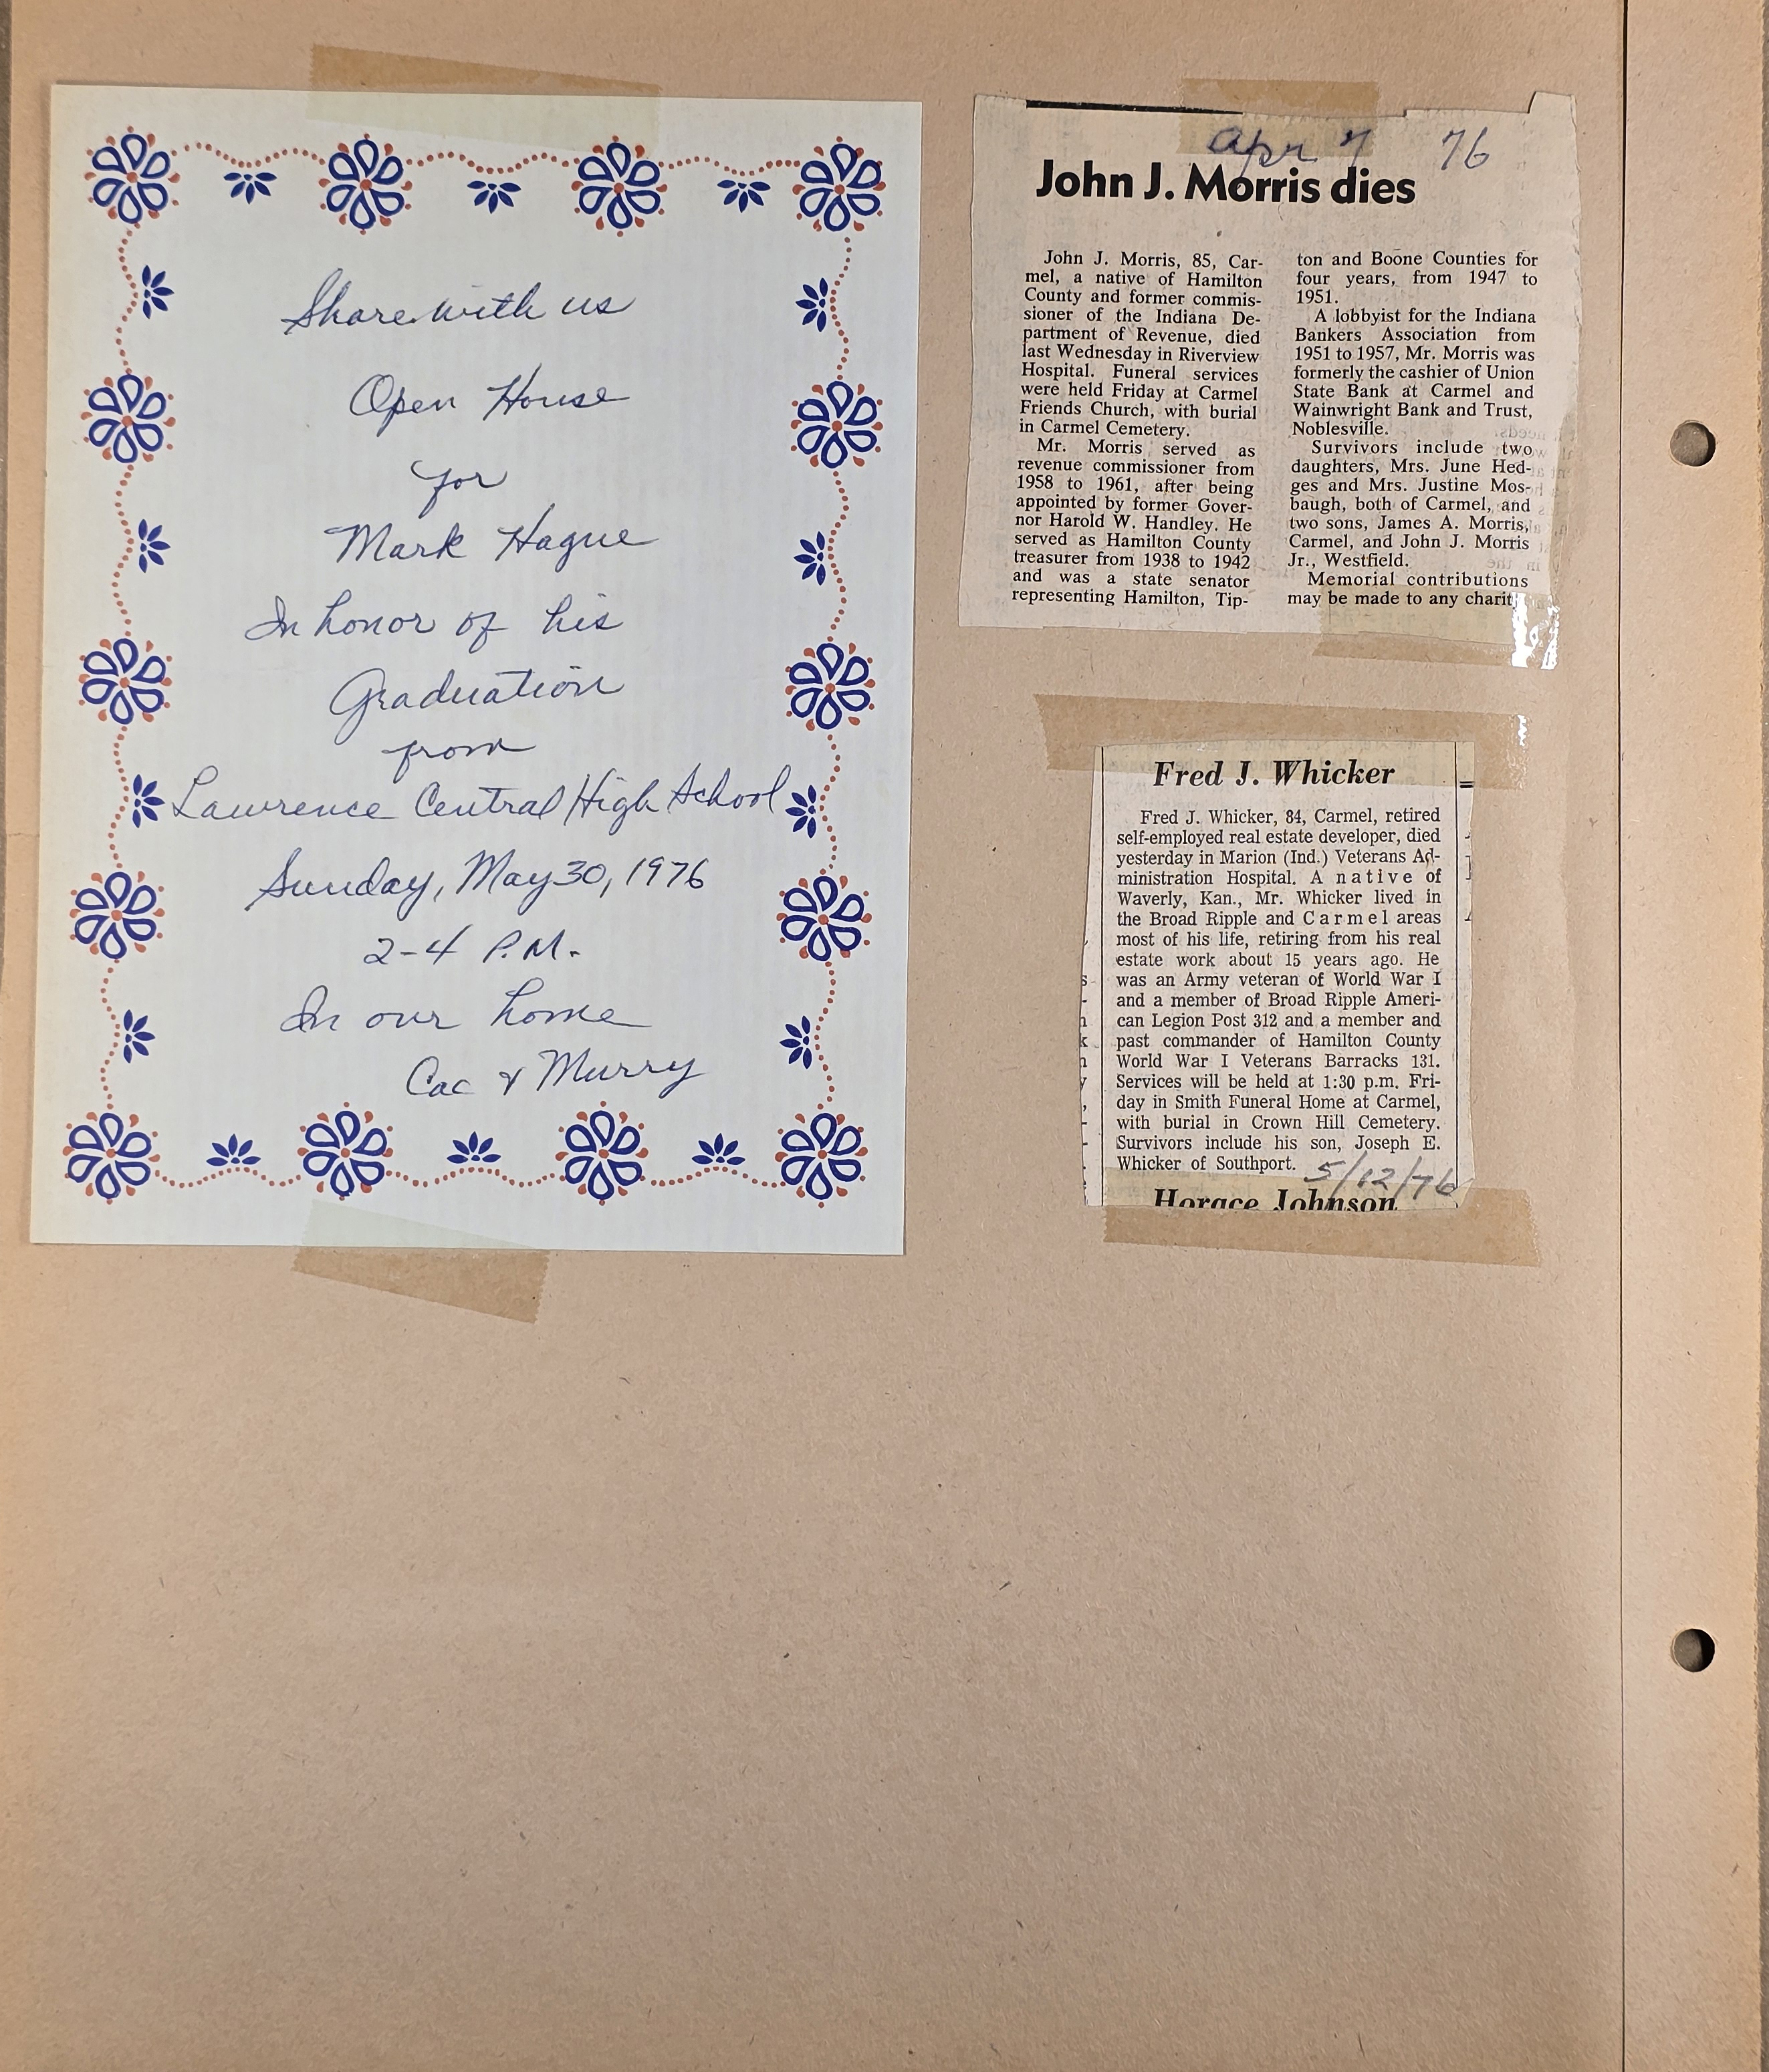 Share with us
Open House
for
Mark Hague
In honor of his
Graduation
from
Lawrence Central High School
Sunday, May 30, 1976
2-4 P.M.
In our home
Cac & Murry
Apr 7 76
John J. Morris dies
John J. Morris, 85, Car-
mel, a native of Hamilton
County and former commis-
sioner of the Indiana De-
partment of Revenue, died
last Wednesday in Riverview
Hospital. Funeral services
were held Friday at Carmel
Friends Church, with burial
in Carmel Cemetery.
Mr. Morris served as
revenue commissioner from
1958 to 1961, after being
appointed by former Gover-
nor Harold W. Handley. He
served as Hamilton County
treasurer from 1938 to 1942
and was a state senator
representing Hamilton, Tip-
ton and Boone Counties for
four years, from 1947 to
1951.
A lobbyist for the Indiana
Bankers Association from
1951 to 1957, Mr. Morris was
formerly the cashier of Union
State Bank at Carmel and
Wainwright Bank and Trust,
Noblesville.
Survivors include two
daughters, Mrs. June Hed-
ges and Mrs. Justine Mos-
baugh, both of Carmel, and
two sons, James A. Morris,
Carmel, and John J. Morris
Jr., Westfield.
Memorial contributions
may be made to any charit
Fred J. Whicker
Fred J. Whicker, 84, Carmel, retired
self-employed real estate developer, died
yesterday in Marion (Ind.) Veterans Ad-
ministration Hospital. A native of
Waverly, Kan., Mr. Whicker lived in
the Broad Ripple and Carmel areas
most of his life, retiring from his real
estate work about 15 years ago. He
was an Army veteran of World War I
and a member of Broad Ripple Ameri-
can Legion Post 312 and a member and
past commander of Hamilton County
World War I Veterans Barracks 131.
Services will be held at 1:30 p.m. Fri-
day in Smith Funeral Home at Carmel,
with burial in Crown Hill Cemetery.
Survivors include his son, Joseph E.
Whicker of Southport.
5/12/76
Horace Johnson